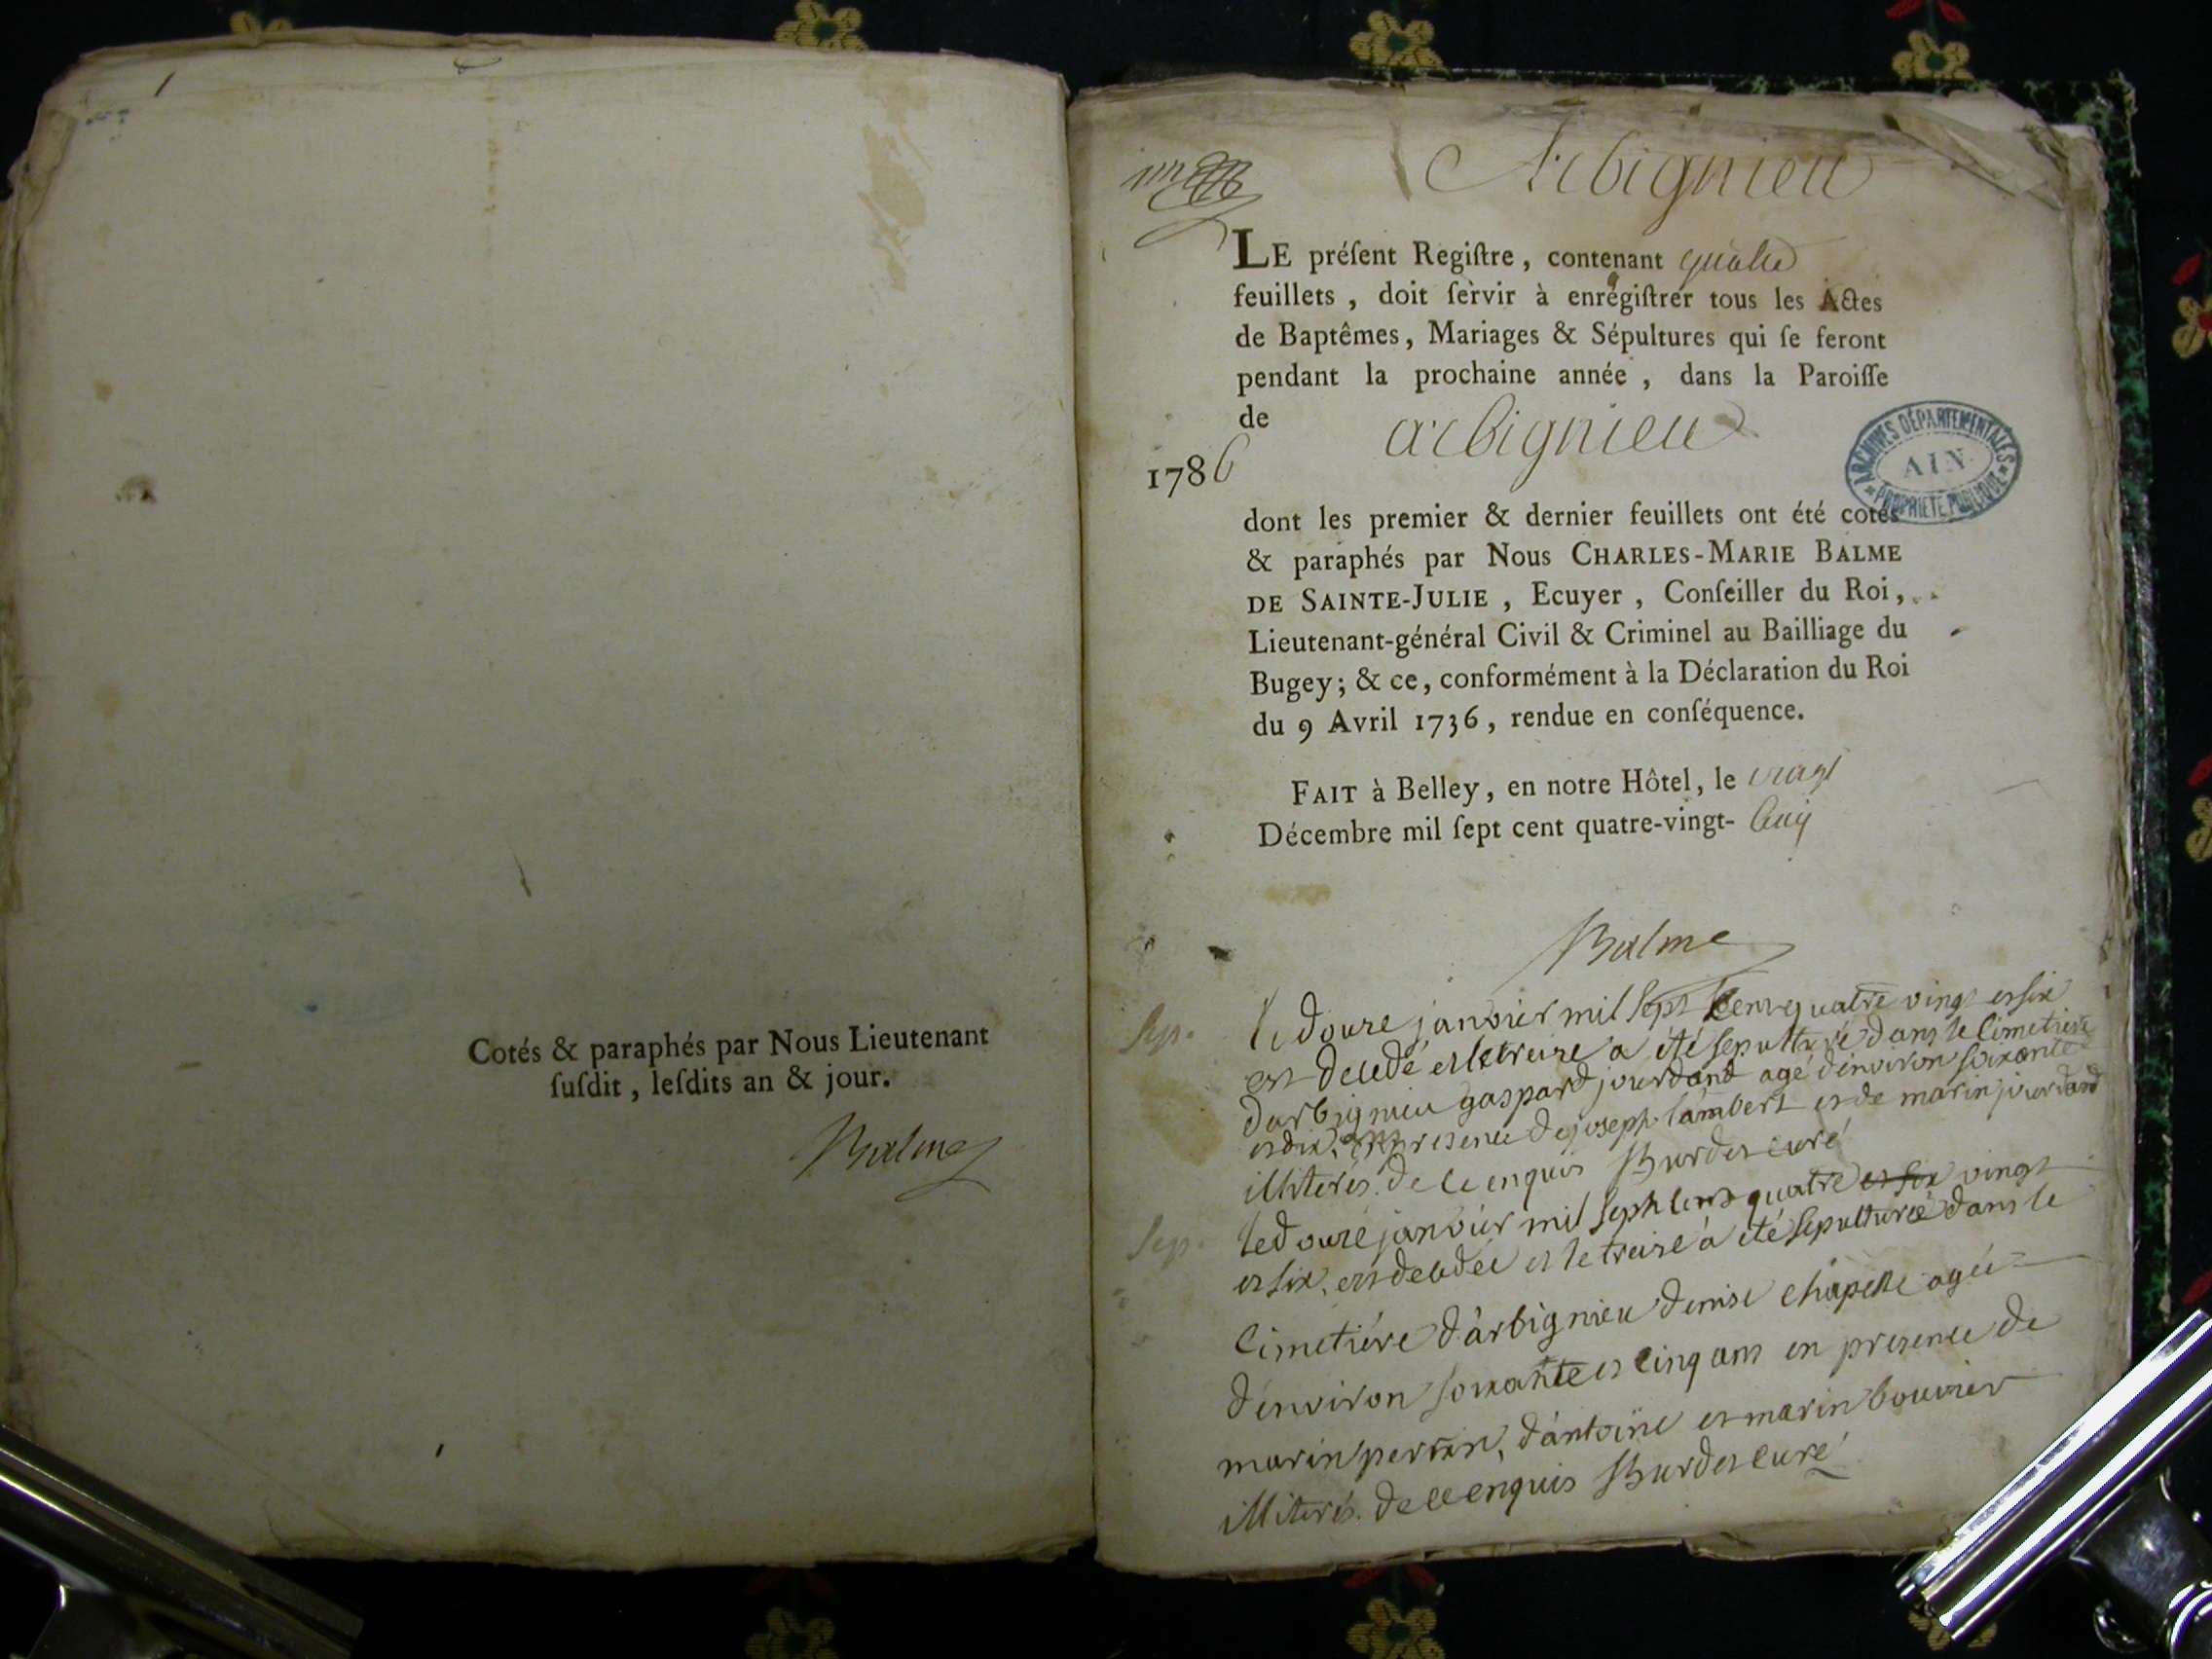 Cotés & paraphés par Nous Lieutenant
ſuſdit, leſdits an & jour.
Balme
Arbignieu
LE préſent Regiſtre, contenant quatre
feuillets, doit ſervir à enregiſtrer tous les Actes
de Baptêmes, Mariages & Sépultures qui ſe feront
pendant la prochaine année, dans la Paroiſſe
de arbignieu
1786
ARCHIVES DÉPARTEMENTALES
AIN
PROPRIÉTÉ PUBLIQUE
dont les premier & dernier feuillets ont été cotés
& paraphés par Nous CHARLES-MARIE BALME
DE SAINTE-JULIE, Ecuyer, Conſeiller du Roi,
Lieutenant-général Civil & Criminel au Bailliage du
Bugey; & ce, conformément à la Déclaration du Roi
du 9 Avril 1736, rendue en conſéquence.
FAIT à Belley, en notre Hôtel, le vingt
Décembre mil ſept cent quatre-vingt- cinq
Balme
Sep. le douze janvier mil sept cent quatre vingt et six
est decedé et le treize a été sepulturé dans le cimetiere
d'arbignieu gaspard jourdand agé d'environ soixante
et dix, en presence de joseph lambert et de marin jourdand
illiterés de ce enquis Burdet curé
Sep. le douze janvier mil sept cent quatre et six vingt
et six, est decedée et le treize a été sepulturée dans le
cimetiére d'arbignieu denise chapelle agée
d'environ soixante et cinq ans en presence de
marin perrin, d'antoine et marin bouvier
illiterés de ce enquis Burdet curé